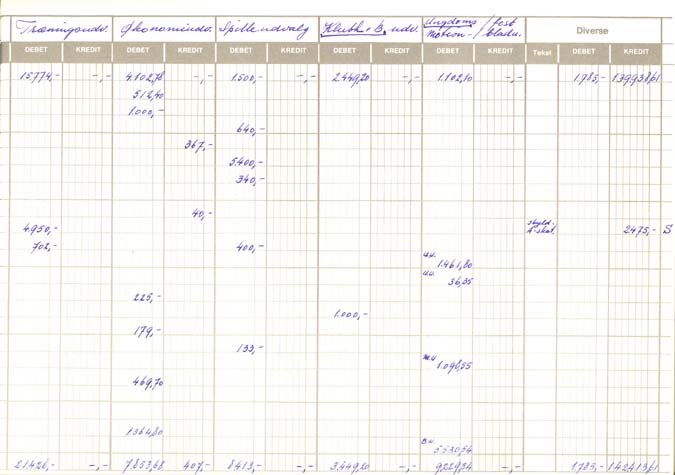 Træningsudv. Økonomiudv. Spilleudvalg Klubh. + B. udv. Ungdoms / fest
Motion- / bladu. Diverse
DEBET KREDIT DEBET KREDIT DEBET KREDIT DEBET KREDIT DEBET KREDIT Tekst DEBET KREDIT
15774,- -,- 4.102,78 -,- 1.500,- -,- 2.449,20 -,- 1.102,10 -,- 1.785,- 139938,61
512,40
1.000,-
640,-
367,-
5.400,-
340,-
40,-
skyld.
4.950,- A-skat. 2475,- S
702,- 400,-
u.u.
1.461,80
u.u.
36,35
225,-
1.000,-
179,-
133,-
1.098,55
469,70
1.364,80
B.u.
5.530,54
21426,- -,- 7.853,68 407,- 8413,- -,- 3.449,20 -,- 9.229,34 -,- 1.785,- 142413,61